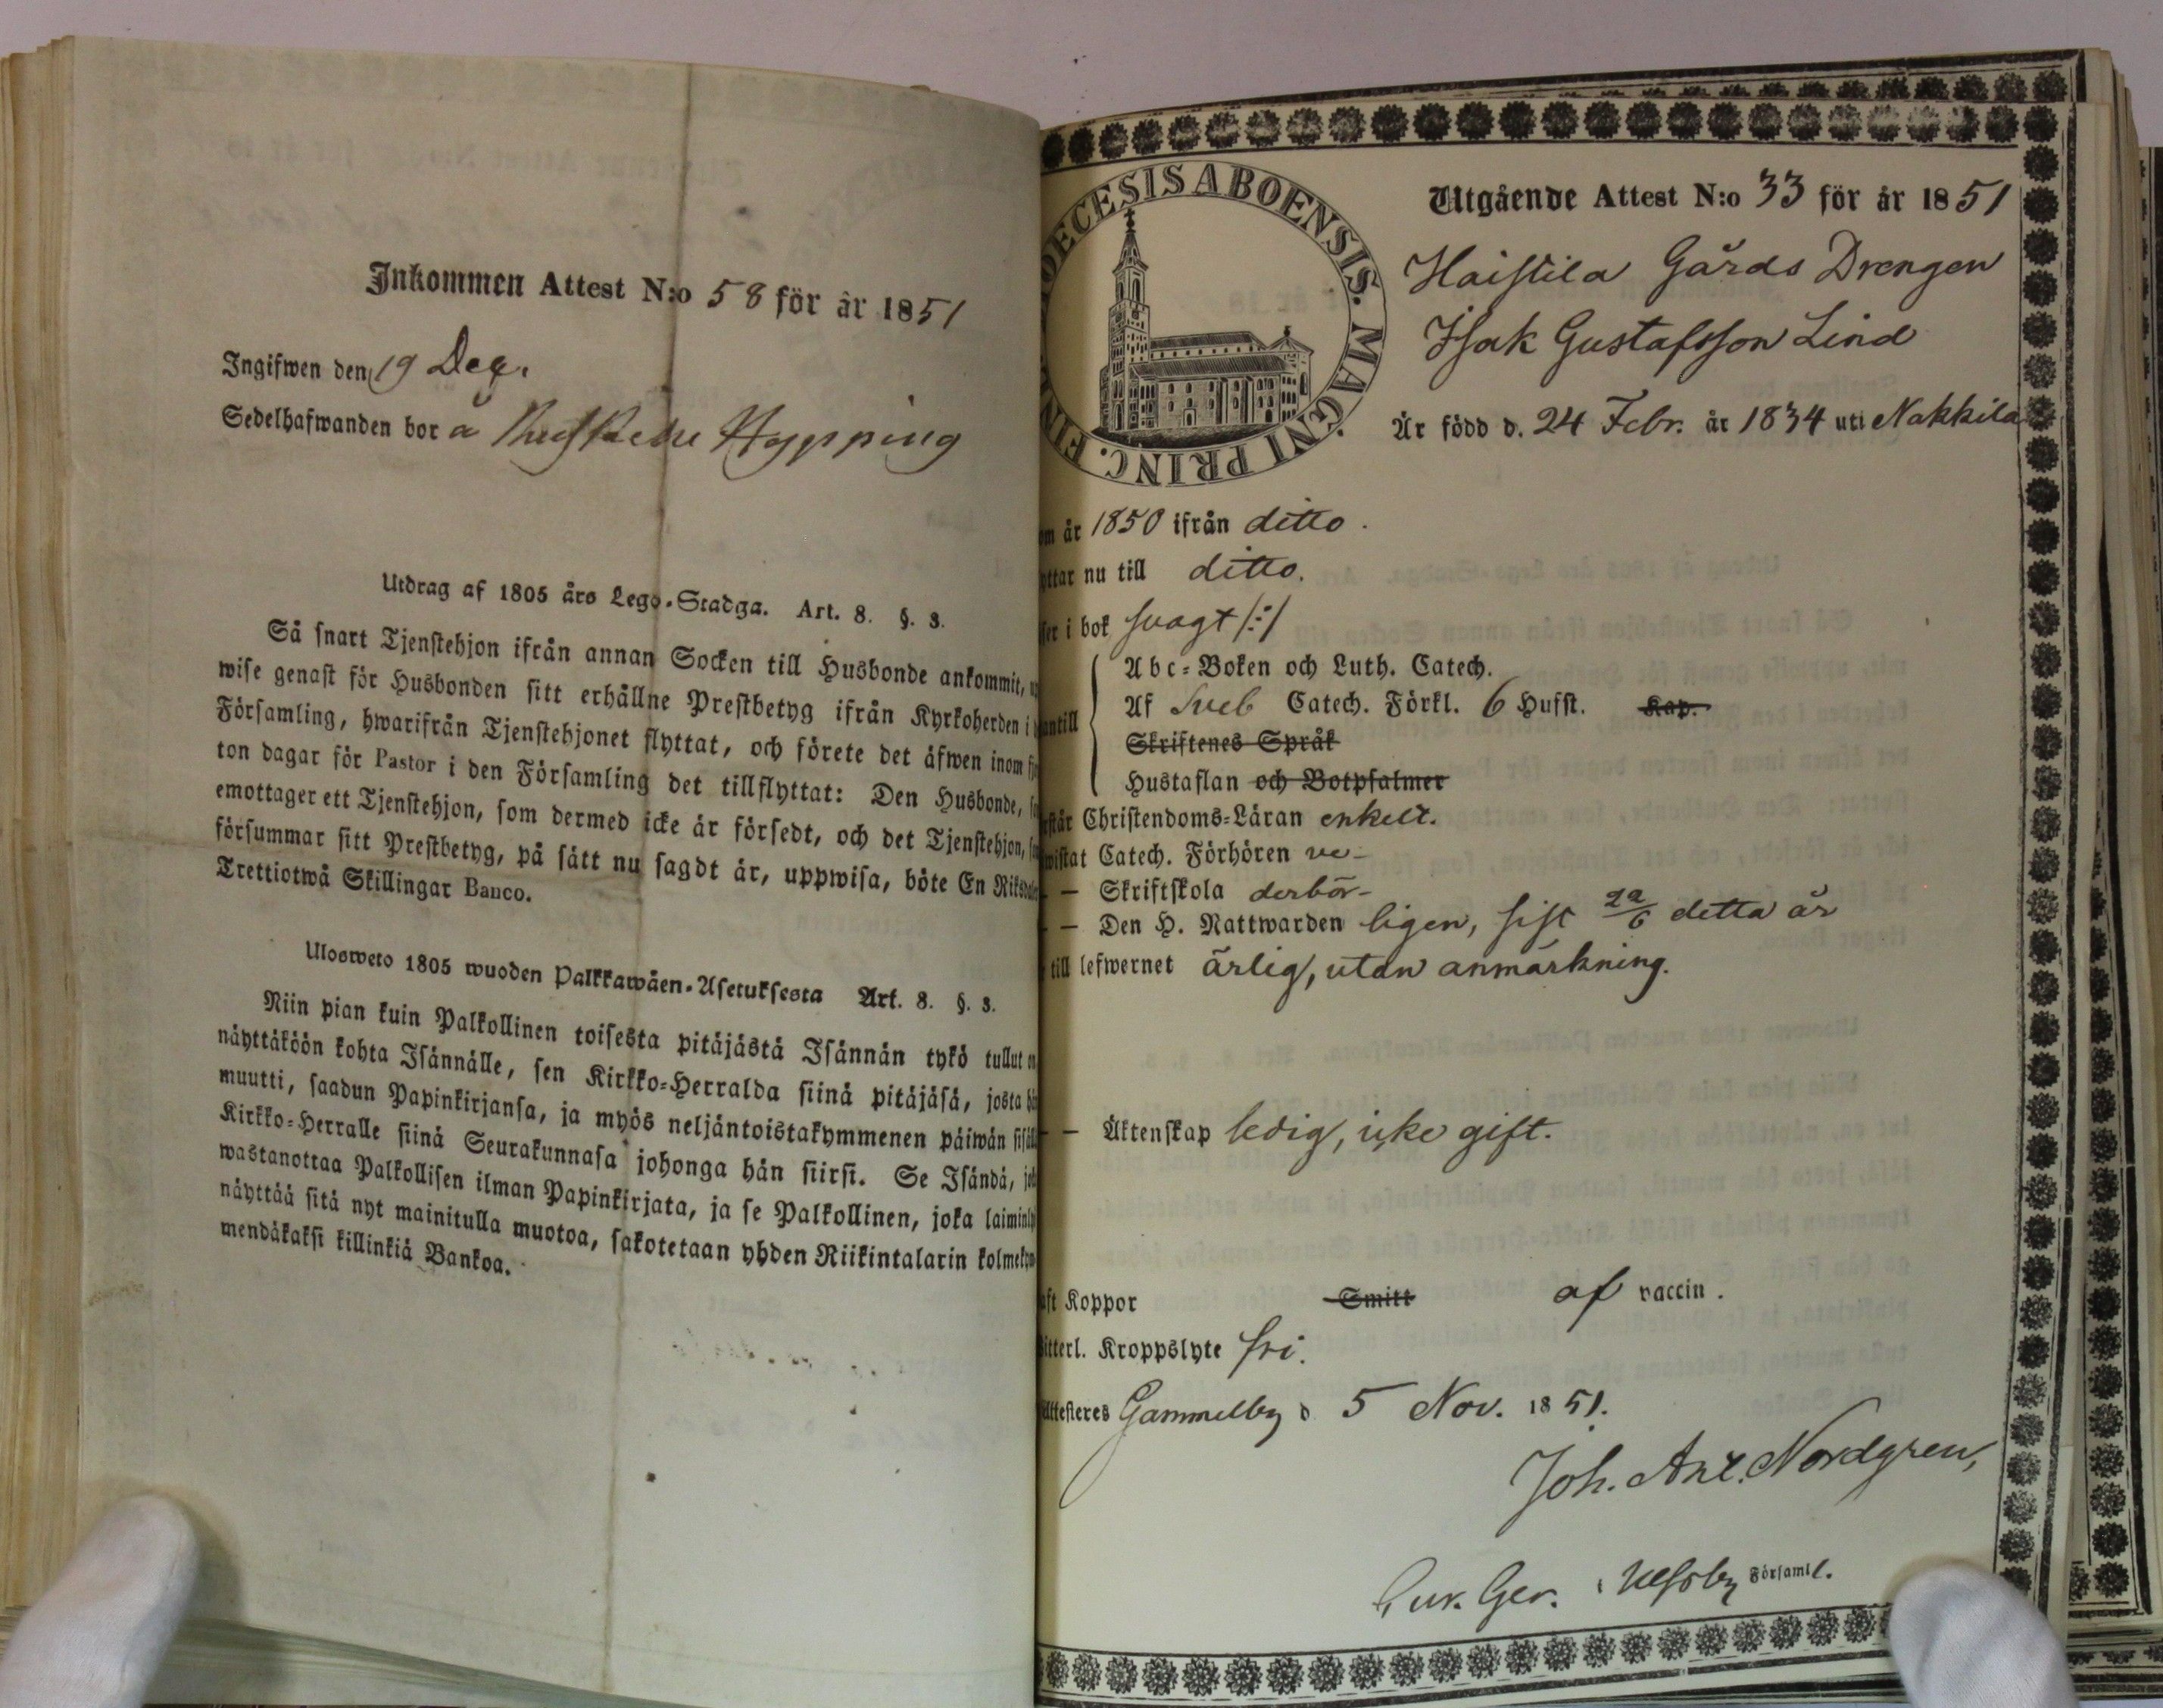 Inkommen Attest N:o 58 för år 1851
Ingifwen den 19 Dec.
Sedelhafwanden bor å Hypping
Utdrag af 1805 års Lego-Stadga. Art. 8. §. 3.
Så snart Tjenstehjon ifrån annan Socken till Husbonde ankommit,
wise genast för Husbonden sitt erhållne Prestbetyg ifrån Kyrkoherden i
Församling, hwarifrån Tjenstehjonet flyttat, och förete det äfwen inom
ton dagar för Pastor i den Församling det tillflyttat: Den Husbonde,
emottager ett Tjenstehjon, som dermed icke är försedt, och det Tjenstehjon,
försummar sitt Prestbetyg, på sätt nu sagdt är, uppwisa, böte En Riksdaler
Trettiotwå Skillingar Banco.
Ulosweto 1805 wuoden Palkkawäen-Asetuksesta Art. 8. §. 3.
Niin pian kuin Palkollinen toisesta pitäjästä Isännän tykö tullut on
näyttäköön kohta Isännälle, sen Kirkko-Herralda siinä pitäjäsä, josta hän
muutti, saadun Papinkirjansa, ja myös neljäntoistakymmenen päiwän sisäll
Kirkko-Herralle siinä Seurakunnasa johonga hän siirsi. Se Isändä, jok
wastanottaa Palkollisen ilman Papinkirjata, ja se Palkollinen, joka laiminly
näyttää sitä nyt mainitulla muotoa, sakotetaan yhden Riikintalarin kolmekym
mendäkaksi killinkiä Bankoa.
DIOECESIS ABOENSIS. MAGNI PRINC. FINL
Utgående Attest N:o 33 för år 1851
Haistila Gårds Drengen
Isak Gustafsson Lind
Är född d. 24 Febr. år 1834 uti Nakkila
om år 1850 ifrån ditto.
yttar nu till ditto.
ser i bok svagt /:/
Abc-Boken och Luth. Catech.
antill Af Sveb Catech. Förkl. 6 Husst. Kap.
Skriftenes Språk
Hustaflan och Botpsalmer
rstår Christendoms-Läran enkelt.
wistat Catech. Förhören ve-
— Skriftskola derbör-
— Den H. Nattwarden ligen, sist 22/6 detta år
till lefwernet ärlig, utan anmärkning.
— Äktenskap ledig, icke gift.
aft Koppor Smitt af vaccin.
itterl. Kroppslyte fri.
Attesteres Gammelby d. 5 Nov. 1851.
Joh. Axel. Nordgren,
Cur. Ger. i Ulfsby Församl.